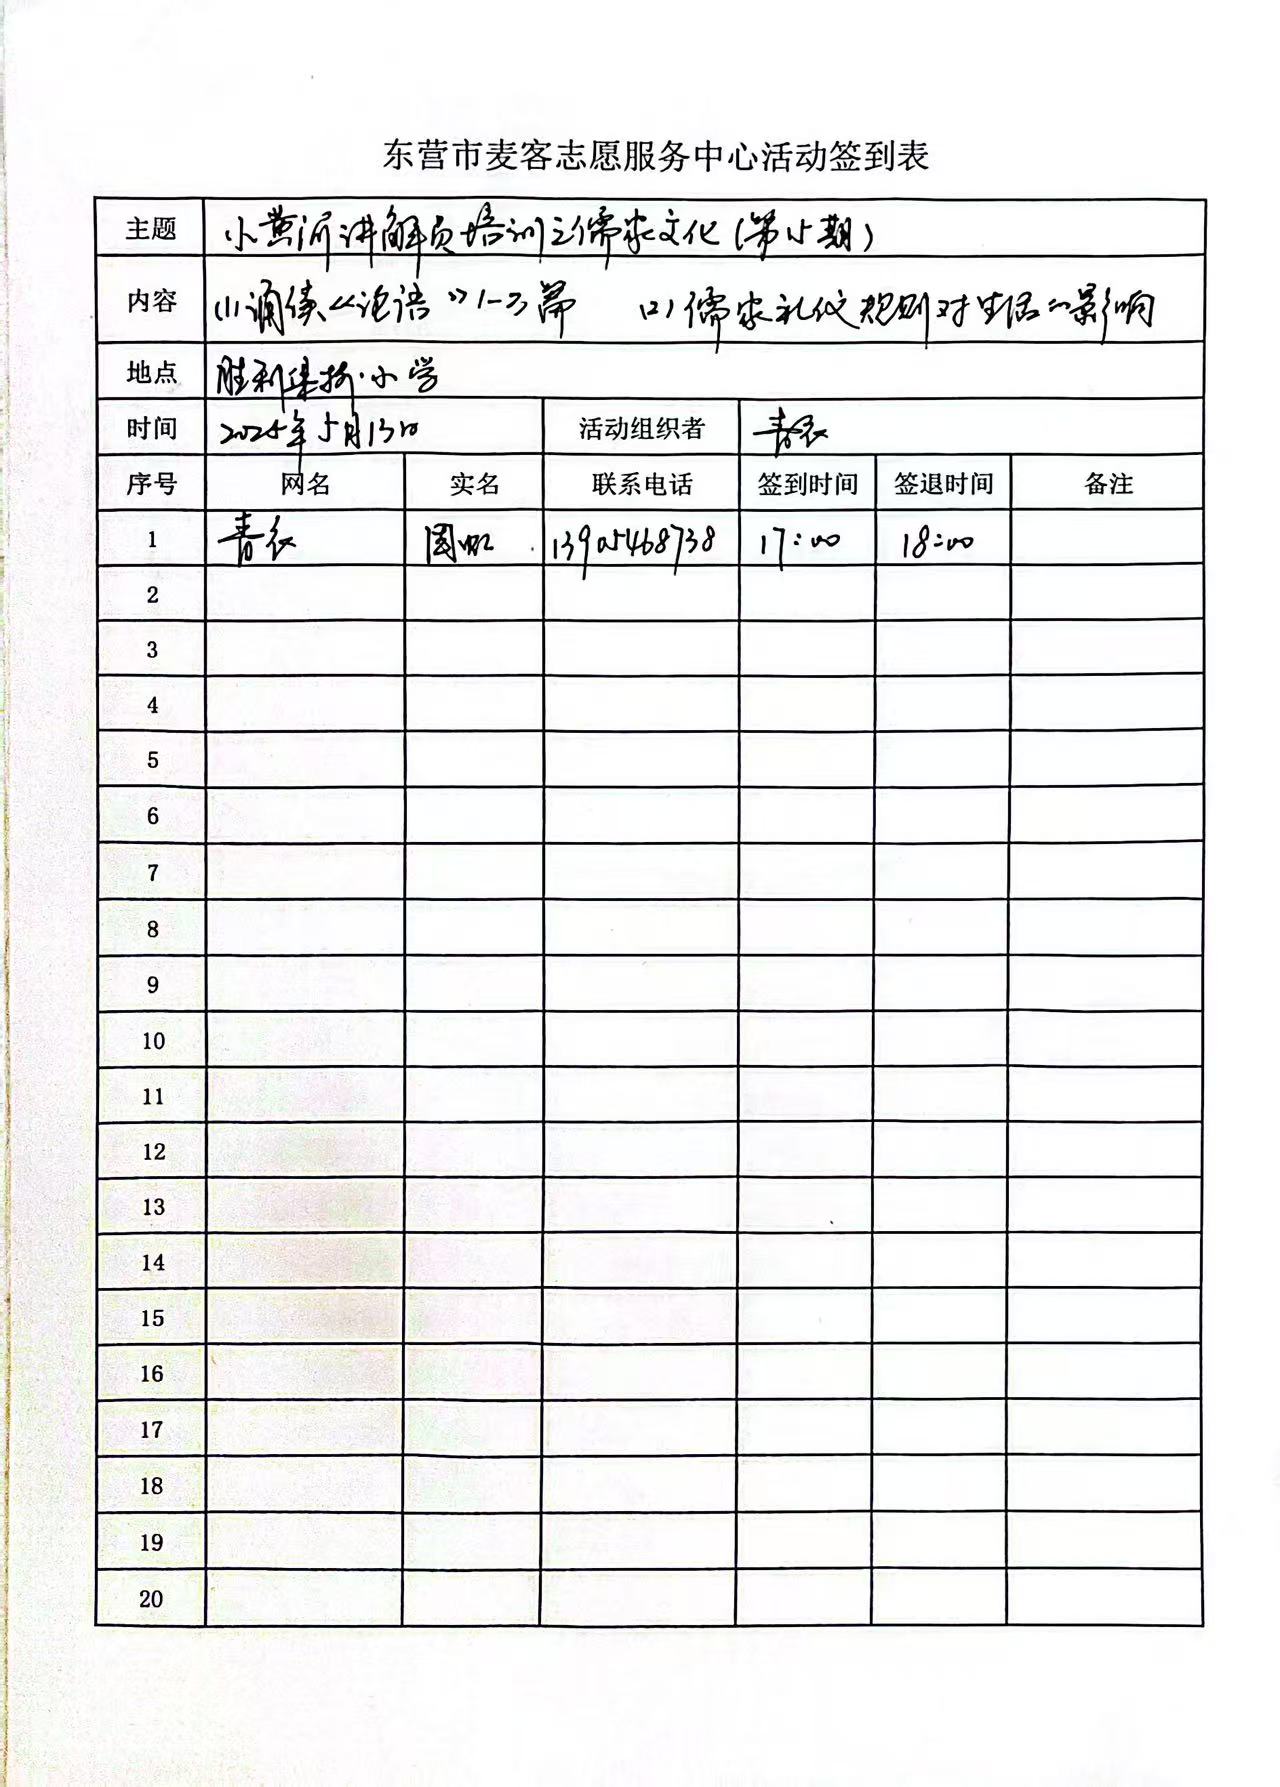 东营市麦客志愿服务中心活动签到表
主题 小黄河讲解员培训之儒家文化(第5期)
内容 (1)诵读《论语》1-2篇 (2)儒家礼仪规则对生活的影响
地点 胜利集输小学
时间 2025年5月13日 活动组织者 青衣
序号 网名 实名 联系电话 签到时间 签退时间 备注
1 青衣 13905468738 17:00 18:00
2
3
4
5
6
7
8
9
10
11
12
13
14
15
16
17
18
19
20